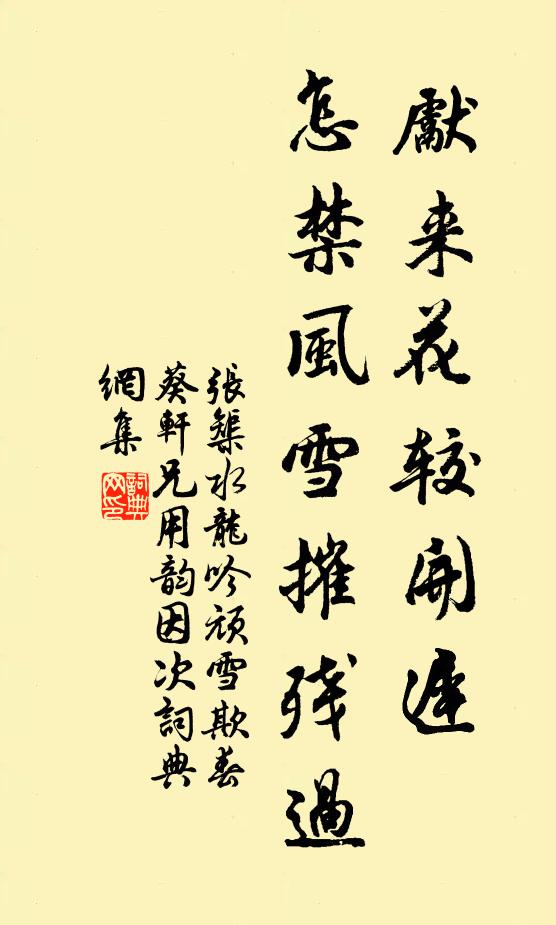 獻来花较開遲
怎禁風雪摧残過
張榘水龍吟頑雪欺春
葵軒兄用韵因次詞典
網集
詞典
网印